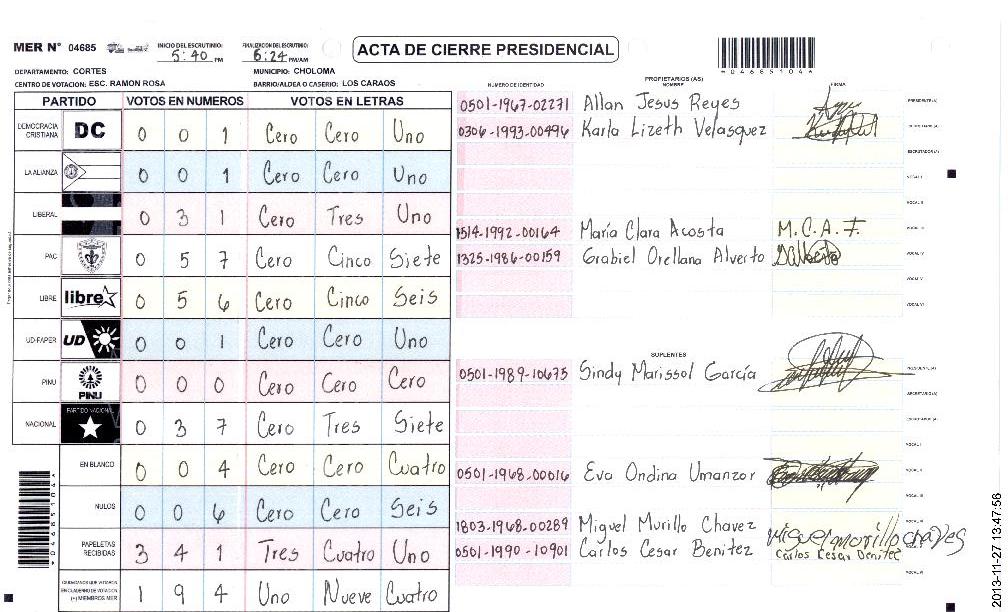 MER N° 04685
INICIO DEL ESCRUTINIO: 5:40 PM
FINALIZACION DEL ESCRUTINIO: 6:24 PM/AM
ACTA DE CIERRE PRESIDENCIAL
0468510 4
DEPARTAMENTO: CORTES
MUNICIPIO: CHOLOMA
CENTRO DE VOTACION: ESC. RAMON ROSA
BARRIO/ALDEA O CASERIO: LOS CARAOS
PARTIDO VOTOS EN NUMEROS VOTOS EN LETRAS
DEMOCRACIA CRISTIANA DC 0 0 1 Cero Cero Uno
LA ALIANZA 0 0 1 Cero Cero Uno
LIBERAL 0 3 1 Cero Tres Uno
PAC 0 5 7 Cero Cinco Siete
LIBRE libre 0 5 6 Cero Cinco Seis
UD-FAPER UD 0 0 1 Cero Cero Uno
PINU PINU 0 0 0 Cero Cero Cero
NACIONAL PARTIDO NACIONAL 0 3 7 Cero Tres Siete
EN BLANCO 0 0 4 Cero Cero Cuatro
NULOS 0 0 6 Cero Cero Seis
PAPELETAS RECIBIDAS 3 4 1 Tres Cuatro Uno
CIUDADANOS QUE VOTARON EN CUADERNO DE VOTACION (+) MIEMBROS MER 1 9 4 Uno Nueve Cuatro
PROPIETARIOS (AS)
NUMERO DE IDENTIDAD NOMBRE FIRMA
0501-1967-02271 Allan Jesus Reyes PRESIDENTE(A)
0306-1993-00496 Karla Lizeth Velasquez SECRETARIO(A)
ESCRUTADOR(A)
VOCAL I
VOCAL II
1514-1992-00164 María Clara Acosta M.C.A.F. VOCAL III
1325-1986-00159 Grabiel Orellana Alverto VOCAL IV
VOCAL V
VOCAL VI
SUPLENTES
0501-1989-10675 Sindy Marissol García PRESIDENTE(A)
SECRETARIO(A)
ESCRUTADOR(A)
VOCAL I
0501-1968-00016 Eva Ondina Umanzor VOCAL II
VOCAL III
1803-1968-00289 Miguel Murillo Chavez Miguel Morillo chaves VOCAL IV
0501-1990-10901 Carlos Cesar Benitez Carlos Cesar Benitez
VOCAL VI
2013-11-27 13:47:56